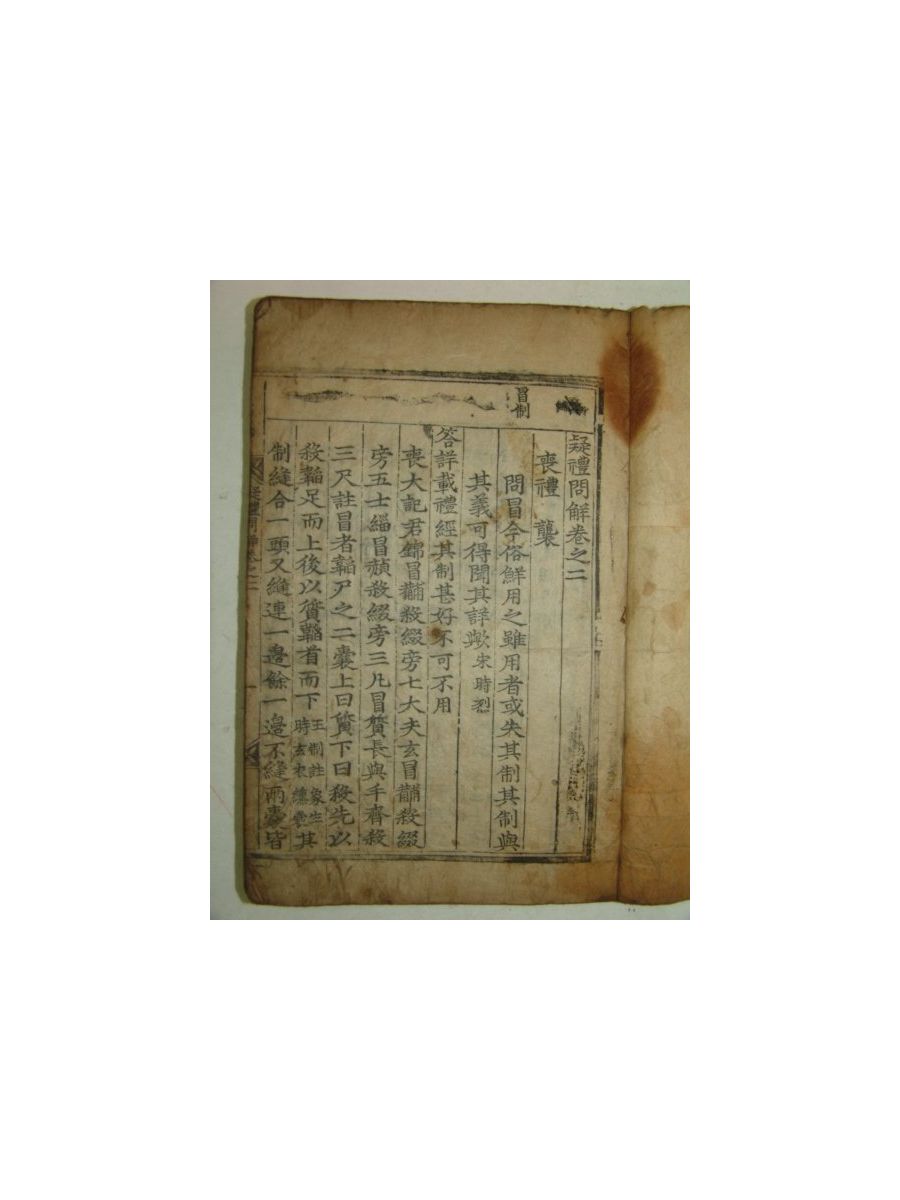 疑禮問解卷之二
喪禮 襲
冒制
問冒今俗鮮用之雖用者或失其制其制與
其義可得聞其詳歟宋時烈
答詳載禮經其制甚好不可不用
喪大記君錦冒黼殺綴旁七大夫玄冒黼殺綴
旁五士緇冒赬殺綴旁三凡冒質長與手齊殺
三尺註冒者韜尸之二囊上曰質下曰殺先以
殺韜足而上後以質韜首而下王制註象生時玄衣纁裳其
制縫合一頭又縫連一邊餘一邊不縫兩囊皆
疑禮問解卷之二